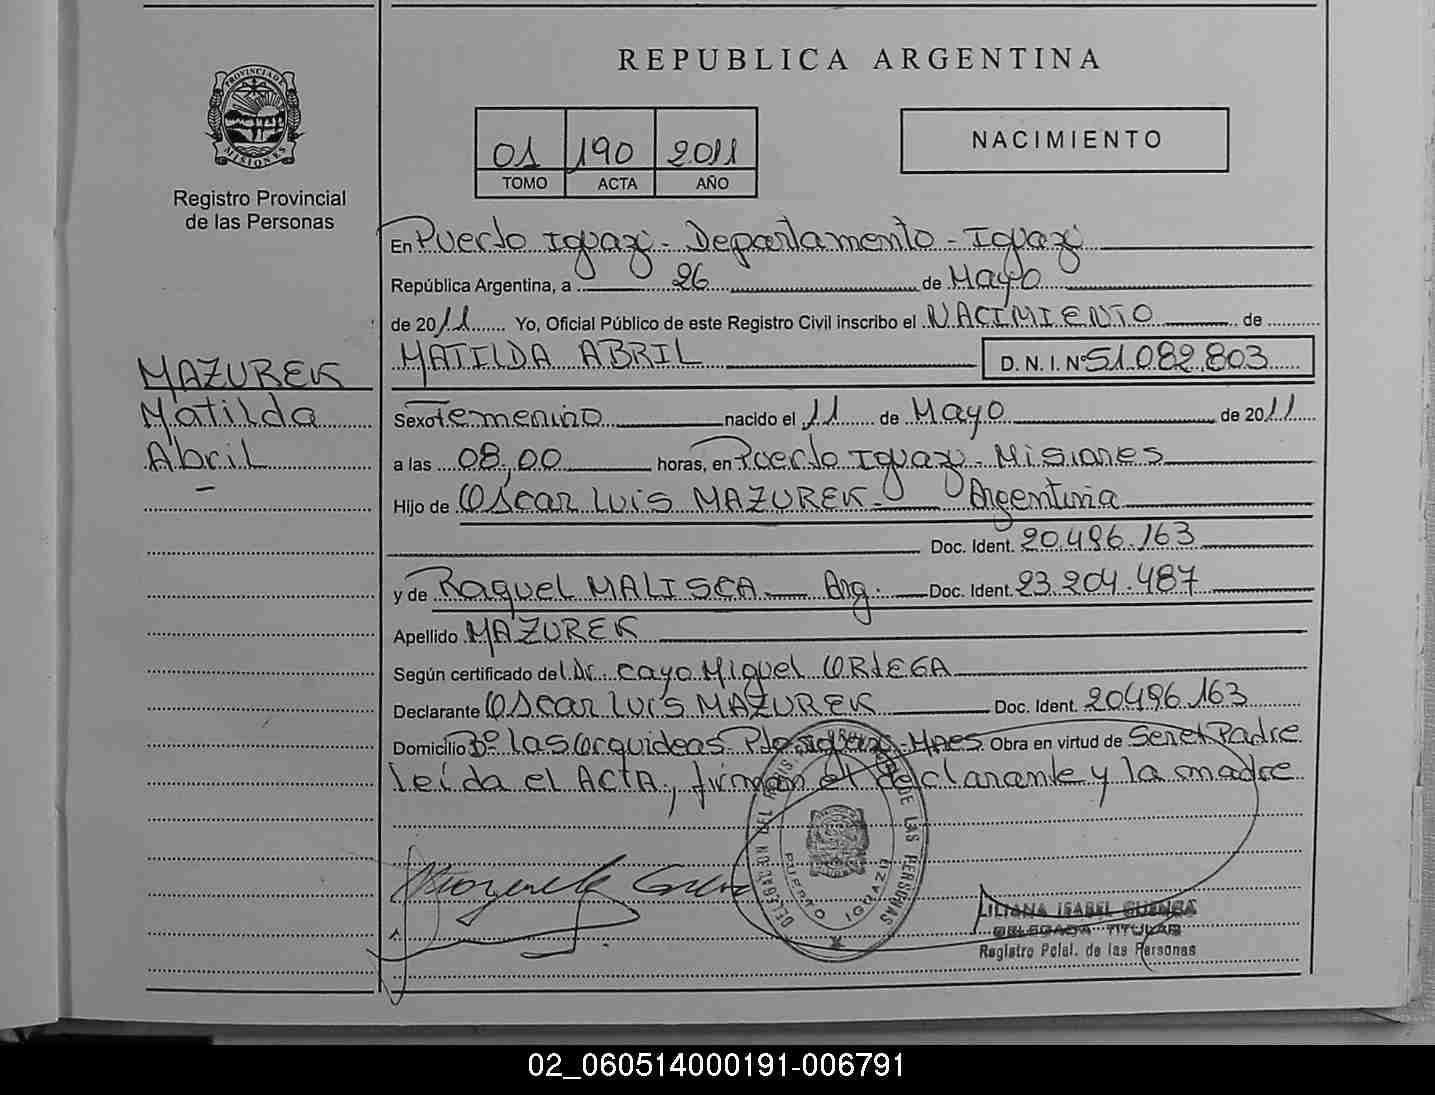 REPUBLICA ARGENTINA
PROVINCIA DE
MISIONES
Registro Provincial
de las Personas
01 190 2011
TOMO ACTA AÑO
NACIMIENTO
En Puerto Iguazú - Departamento - Iguazú
República Argentina, a 26 de Mayo
de 2011 Yo, Oficial Público de este Registro Civil inscribo el NACIMIENTO de
MATILDA ABRIL D. N. I. Nº 51.082.803
MAZUREK
Matilda
Abril
Sexo Femenino nacido el 11 de Mayo de 2011
a las 08,00 horas, en Puerto Iguazú - Misiones
Hijo de Oscar Luis MAZUREK - Argentina
Doc. Ident. 20.496.163
y de Raquel MALISCA Arg. Doc. Ident. 23.204.487
Apellido MAZUREK
Según certificado del Dr. Cayo Miguel ORTEGA
Declarante Oscar Luis MAZUREK Doc. Ident. 20496.163
Domicilio Bº Las Orquideas Pto Iguazú - Mnes Obra en virtud de Ser el Padre
leída el ACTA, firman el declarante y la madre
PUERTO IGUAZU
DE LAS PERSONAS
LILIANA ISABEL CUENCA
DELEGADA TITULAR
Registro Pcial. de las Personas
02_060514000191-006791